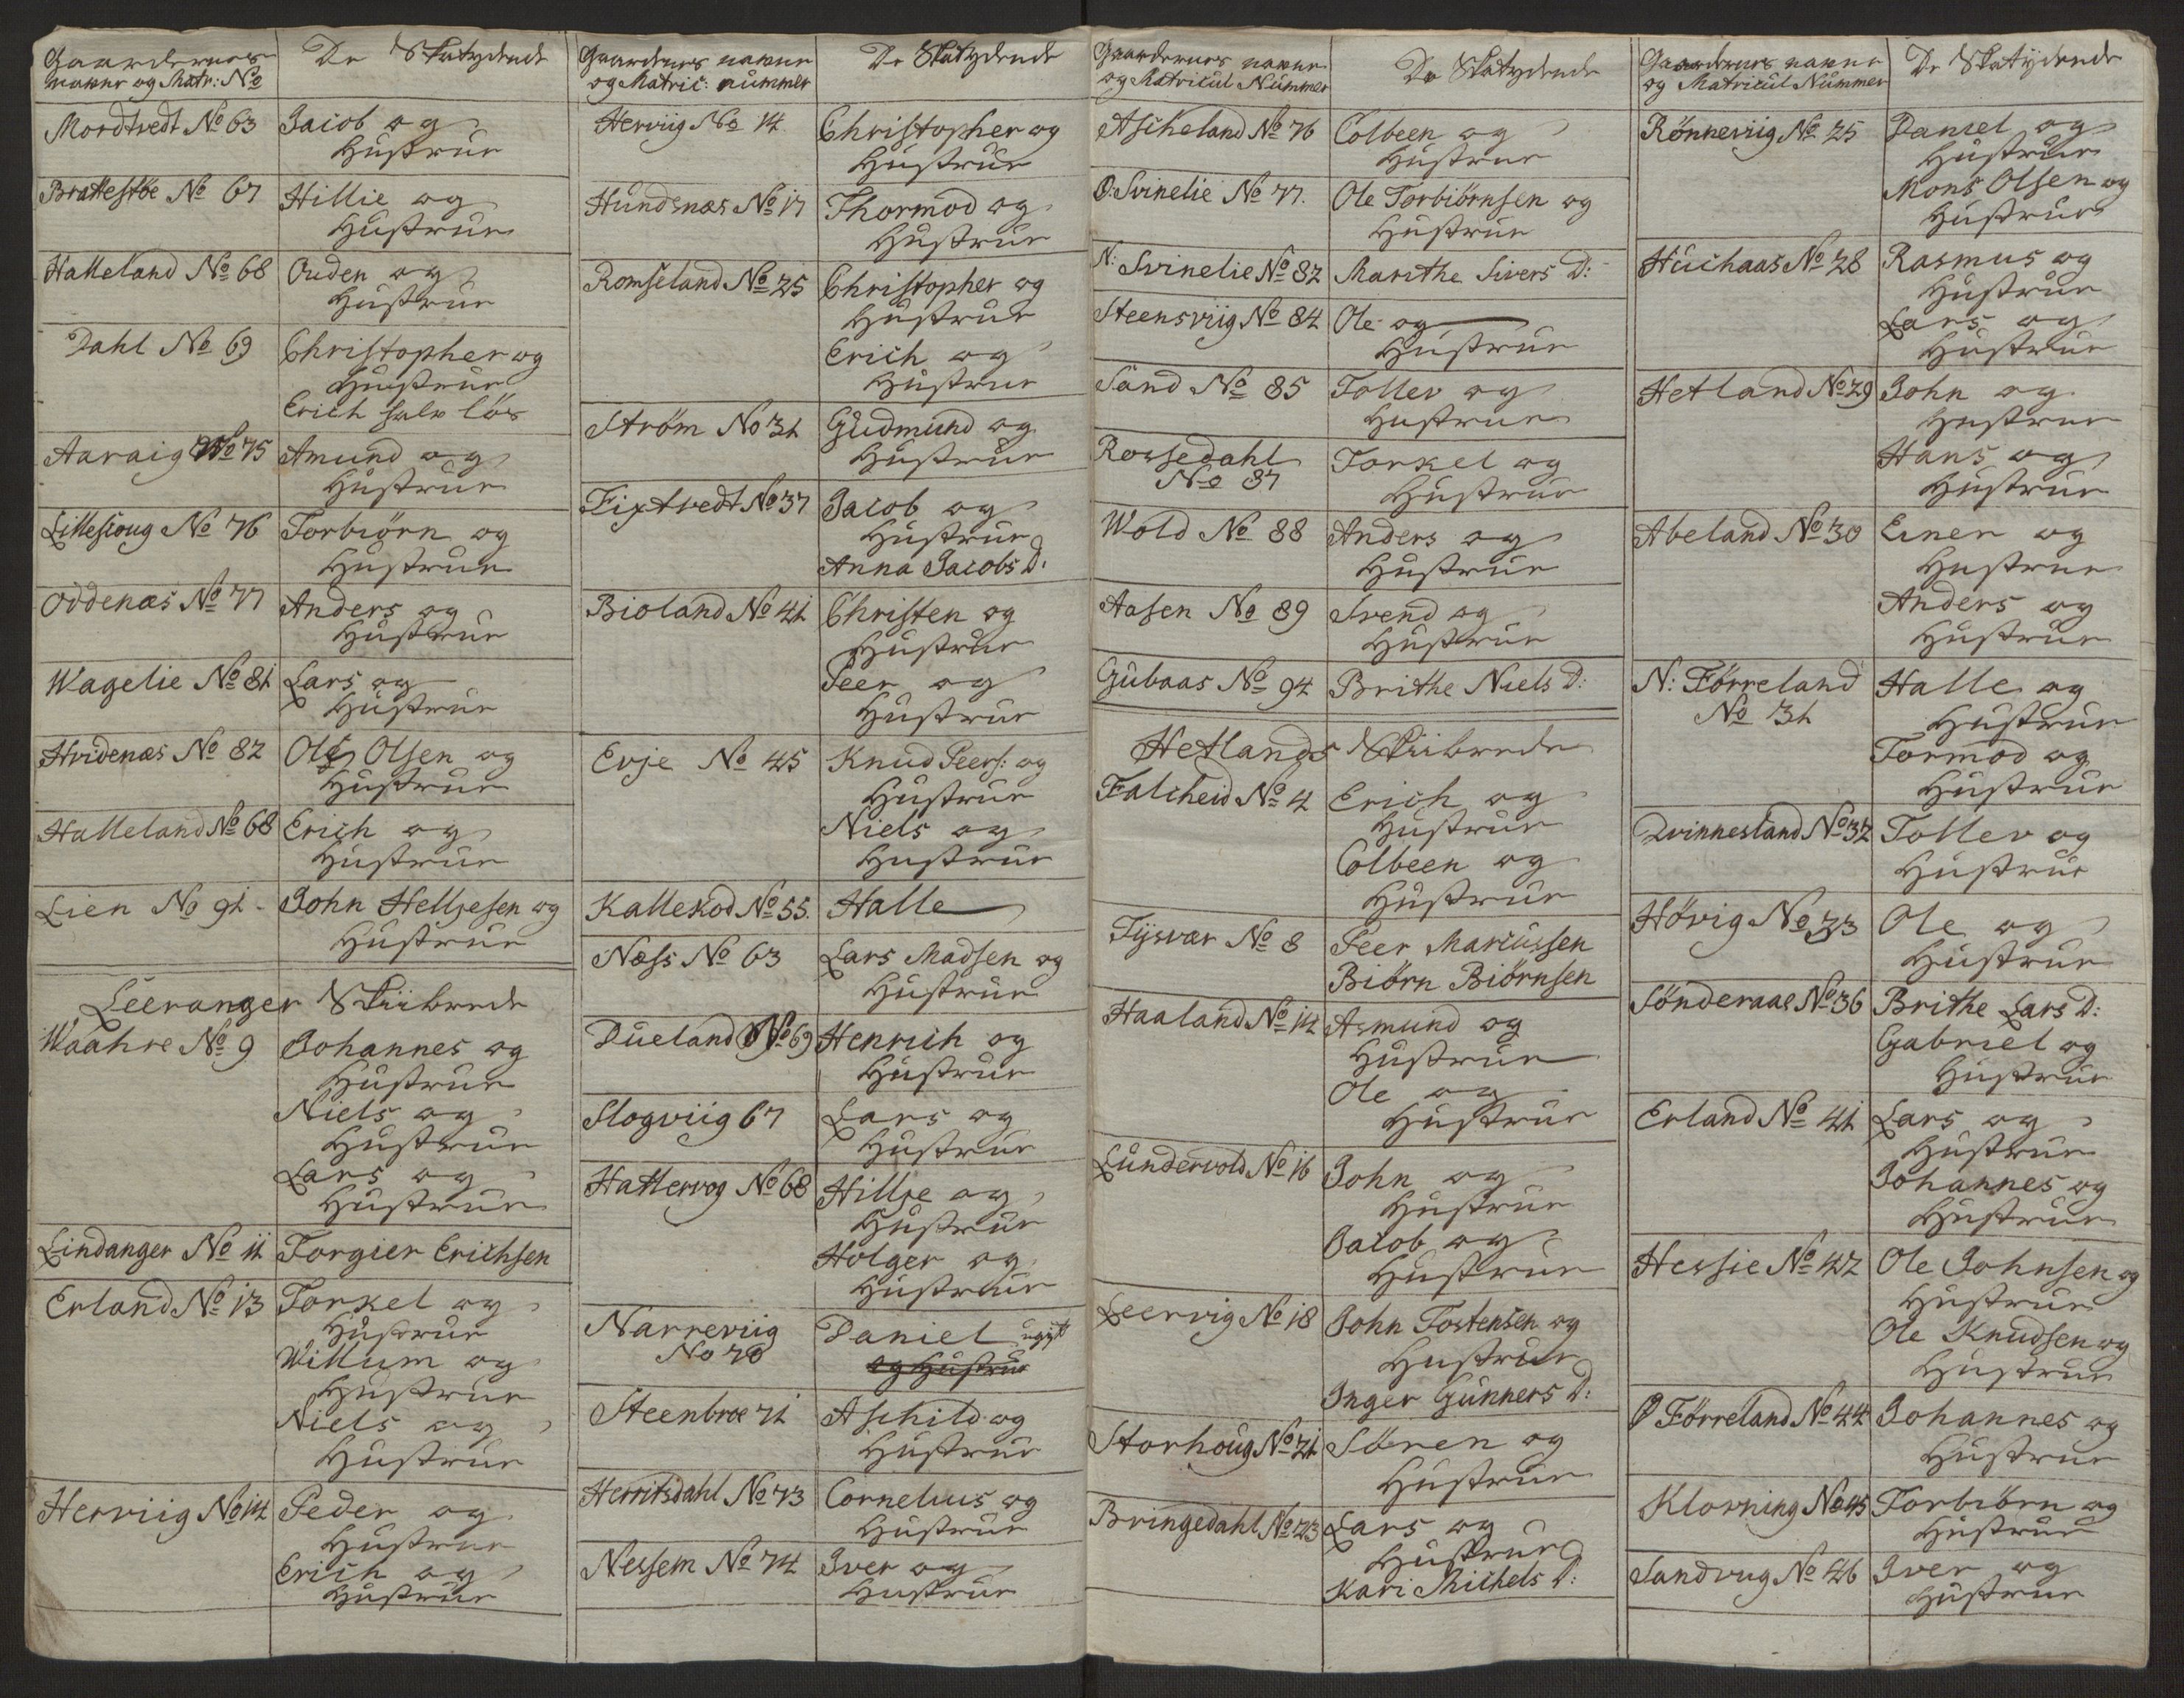 Gaardernes navne og Matr: No | De Skatydende
Mordtvedt No 63 | Jacob og
Hustrue
Brattestøe No 67 | Hillie og
Hustrue
Halleland No 68 | Ouden og
Hustrue
Dahl No 69 | Christopher og
Hustrue
Erich halv løs
Aaraig No 75 | Amund og
Hustrue
Lillesioug No 76 | Torbiørn og
Hustrue
Oddenæs No 77 | Anders og
Hustrue
Wagelie No 81 | Lars og
Hustrue
Hvidenæs No 82 | Ole Olsen og
Hustrue
Halleland No 68 | Erich og
Hustrue
Lien No 91 | John Helljesen og
Hustrue
Leeranger Skiibrede
Waahre No 9 | Johannes og
Hustrue
Niels og
Hustrue
Lars og
Hustrue
Lindanger No 11 | Torgier Erichsen
Erland No 13 | Torkel og
Hustrue
Willum og
Hustrue
Niels og
Hustrue
Herviig No 14 | Peder og
Hustrue
Erich og
Hustrue
Gaardenes navne og Matric: nummer | De Skatydende
Herviig No 14 | Christopher og
Hustrue
Hundsnæs No 17 | Thormod og
Hustrue
Romseland No 25 | Christopher og
Hustrue
Erich og
Hustrue
Strøm No 31 | Gudmund og
Hustrue
Fixtvedt No 37 | Jacob og
Hustrue
Anna Jacobs D:
Bioland No 41 | Christen og
Hustrue
Peer og
Hustrue
Evje No 45 | Knud Peers: og
Hustrue
Niels og
Hustrue
Kallekod No 55. | Halle
Næss No 63 | Lars Madsen og
Hustrue
Dueland No 69 | Henrich og
Hustrue
Slogviig 67 | Lars og
Hustrue
Hattervog No 68 | Hillje og
Hustrue
Holger og
Hustrue
Narreviig
No 70 | Daniel ugift
og Hustrue
Steenbroe 71 | Aschild og
Hustrue
Herritsdahl No 73 | Cornelius og
Hustrue
Nessem No 74 | Iver og
Hustrue
Gaardernes navne og Matricul Nummer | De Skatydende
Ascheland No 76 | Colbeen og
Hustrue
O: Svinelie No 77. | Ole Torbiørnsen og
Hustrue
N: Svinelie No 82 | Marithe Sivers D:
Steensviig No 84 | Ole og
Hustrue
Sand No 85 | Tollev og
Hustrue
Rossedahl
No 87 | Torkel og
Hustrue
Wold No 88 | Anders og
Hustrue
Aasen No 89 | Svend og
Hustrue
Gubaas No 94 | Brithe Niels D:
Hetlands Skiibrede
Falcheid No 4 | Erich og
Hustrue
Colbeen og
Hustrue
Tysvær No 8 | Peer Marcussen
Biørn Biørnsen
Haaland No 14 | Asmund og
Hustrue
Ole og
Hustrue
Lundervold No 16 | John og
Hustrue
Jacob og
Hustrue
Leervig No 18 | John Tostensen og
Hustrue
Inger Gunners D:
Storhoug No 21 | Søren og
Hustrue
Bringedahl No 23 | Lars og
Hustrue
Kari Michels D:
Gaardernes navne og Matricul Nummer | De Skatydende
Rønneviig No 25 | Daniel og
Hustrue
Mons Olsen og
Hustrue
Huchaas No 28 | Rasmus og
Hustrue
Lars og
Hustrue
Hetland No 29 | John og
Hustrue
Hans og
Hustrue
Abeland No 30 | Einer og
Hustrue
Anders og
Hustrue
N: Førreland
No 31 | Halle og
Hustrue
Tormod og
Hustrue
Qvinnesland No 32 | Tollev og
Hustrue
Høvig No 33 | Ole og
Hustrue
Sønderaae No 36 | Brithe Lars D:
Gabriel og
Hustrue
Erland No 41 | Lars og
Hustrue
Johannes og
Hustrue
Hessie No 42 | Ole Johnsen og
Hustrue
Ole Knudsen og
Hustrue
O Førreland No 44 | Johannes og
Hustrue
Klovning No 45 | Torbiørn og
Hustrue
Sandvug No 46 | Iver og
Hustrue